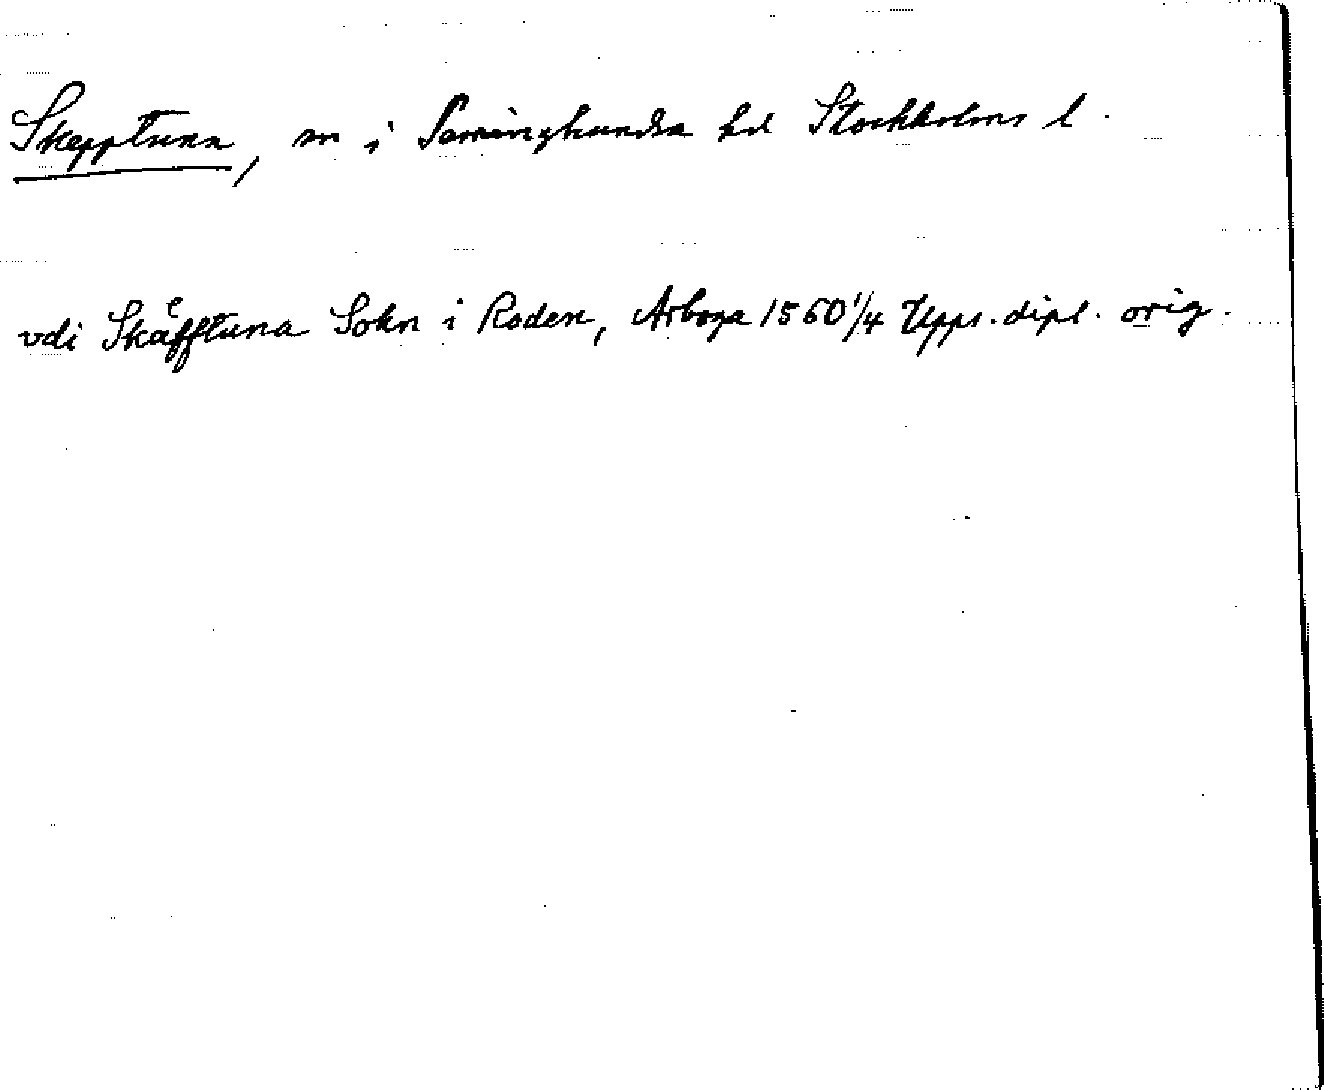 Skepptuna, sn i Seminghundra hd Stockholms l.
vdi Skåefftuna Sokn i Roden, Arboga 1560 1/4 Upps. dipl. orig.